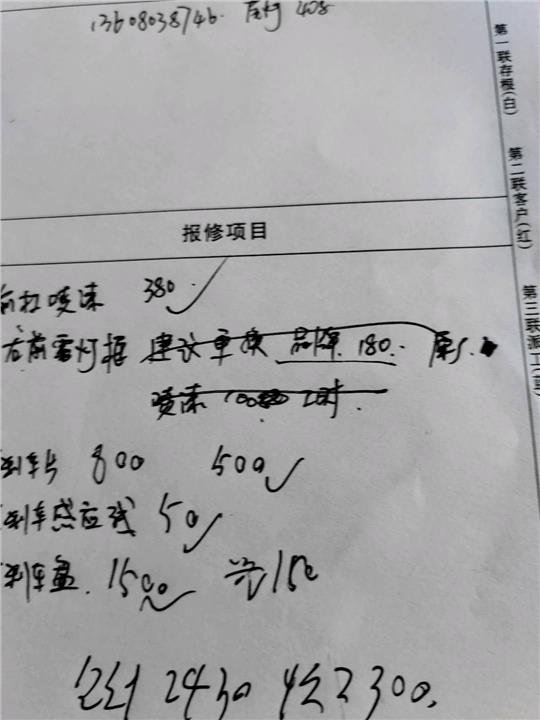 13608038746. 尾灯 408
第一联存根(白)
第二联客户(红)
第三联派工(黄)
报修项目
前杠喷漆 380
右前雾灯框 建议更换 品牌 180. 原厂
喷漆 工时
刹车片 800 500
刹车感应线 50
刹车盘. 1500 光150
2430 2300.